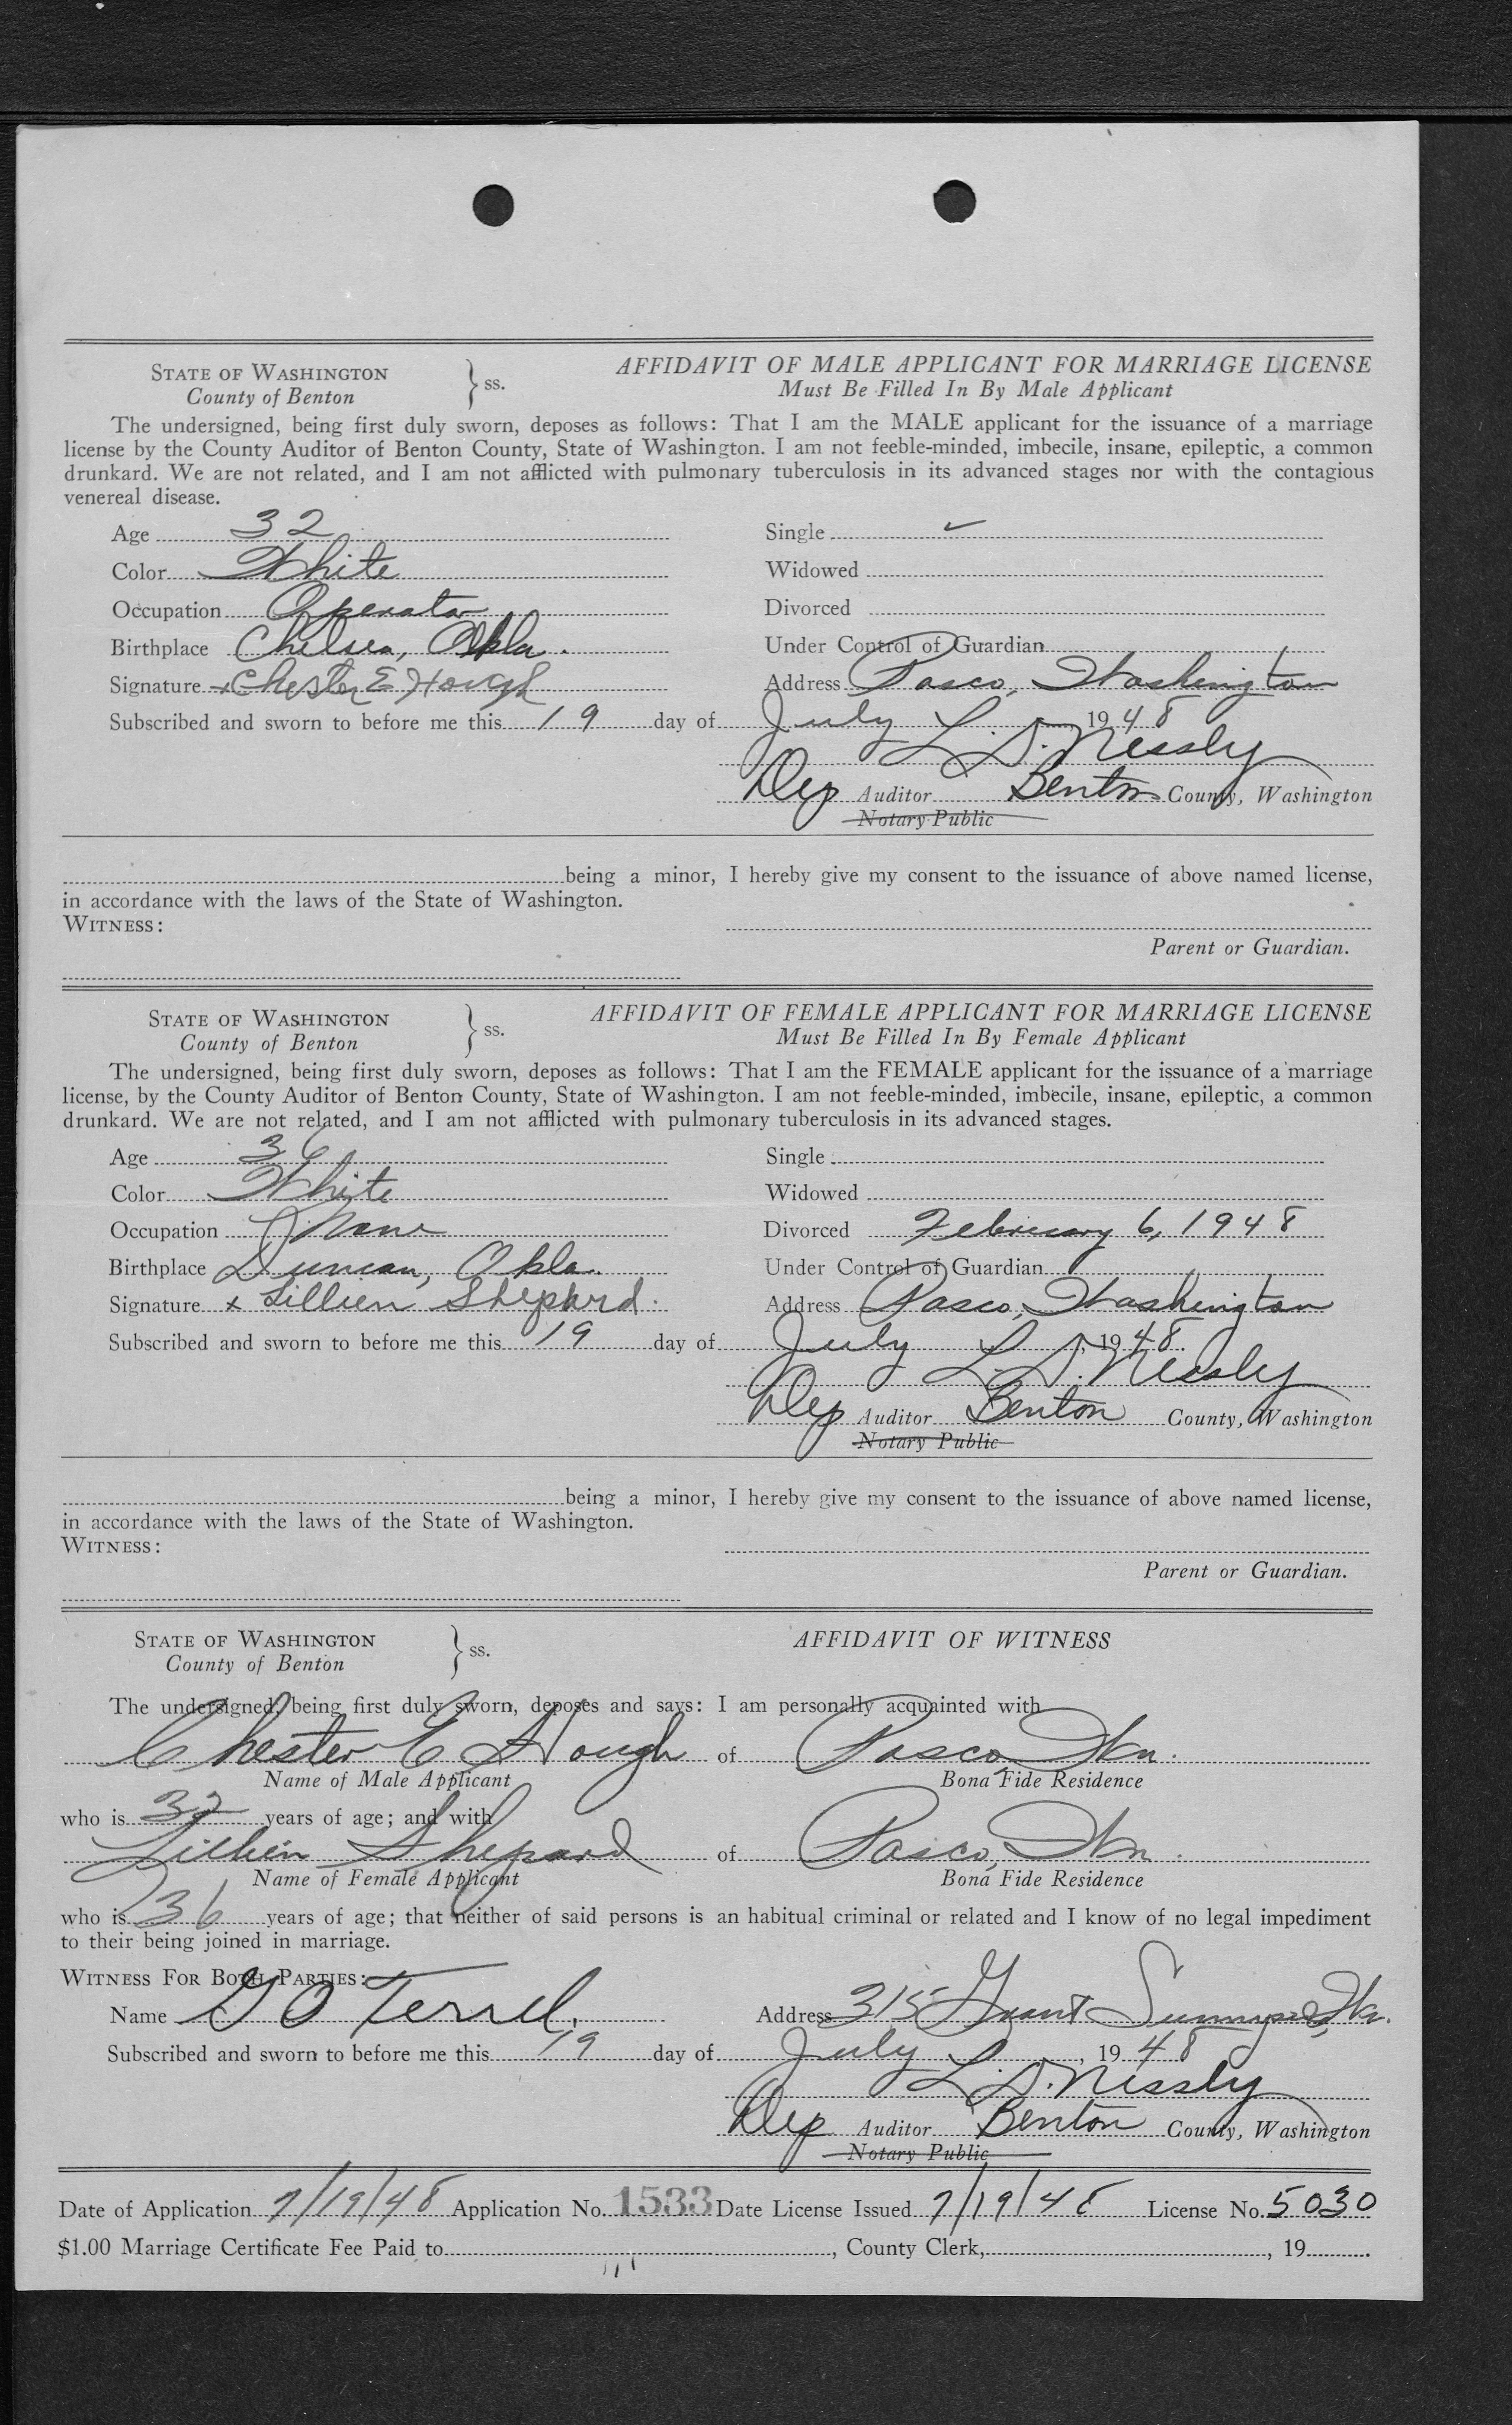 STATE OF WASHINGTON } ss. AFFIDAVIT OF MALE APPLICANT FOR MARRIAGE LICENSE
County of Benton Must Be Filled In By Male Applicant
The undersigned, being first duly sworn, deposes as follows: That I am the MALE applicant for the issuance of a marriage
license by the County Auditor of Benton County, State of Washington. I am not feeble-minded, imbecile, insane, epileptic, a common
drunkard. We are not related, and I am not afflicted with pulmonary tuberculosis in its advanced stages nor with the contagious
venereal disease.
Age 32 Single ✓
Color White Widowed
Occupation Operator Divorced
Birthplace Chelsea, Okla. Under Control of Guardian
Signature x Chester E Hough Address Pasco, Washington
Subscribed and sworn to before me this 19 day of July 1948
L. D. Nessly
Dep Auditor Benton County, Washington
Notary Public
being a minor, I hereby give my consent to the issuance of above named license,
in accordance with the laws of the State of Washington.
WITNESS:
Parent or Guardian.
STATE OF WASHINGTON } ss. AFFIDAVIT OF FEMALE APPLICANT FOR MARRIAGE LICENSE
County of Benton Must Be Filled In By Female Applicant
The undersigned, being first duly sworn, deposes as follows: That I am the FEMALE applicant for the issuance of a marriage
license, by the County Auditor of Benton County, State of Washington. I am not feeble-minded, imbecile, insane, epileptic, a common
drunkard. We are not related, and I am not afflicted with pulmonary tuberculosis in its advanced stages.
Age 36 Single
Color White Widowed
Occupation None Divorced February 6, 1948
Birthplace Duncan, Okla. Under Control of Guardian
Signature x Lillien Shepard Address Pasco, Washington
Subscribed and sworn to before me this 19 day of July, 1948.
L. D. Nessly
Dep Auditor Benton County, Washington
Notary Public
being a minor, I hereby give my consent to the issuance of above named license,
in accordance with the laws of the State of Washington.
WITNESS:
Parent or Guardian.
STATE OF WASHINGTON } ss. AFFIDAVIT OF WITNESS
County of Benton
The undersigned, being first duly sworn, deposes and says: I am personally acquainted with
Chester E Hough of Pasco, Wn.
Name of Male Applicant Bona Fide Residence
who is 32 years of age; and with
Lillien Shepard of Pasco, Wn.
Name of Female Applicant Bona Fide Residence
who is 36 years of age; that neither of said persons is an habitual criminal or related and I know of no legal impediment
to their being joined in marriage.
WITNESS FOR BOTH PARTIES:
Name G O Terrel Address 315 Grant Sunnyside, Wn.
Subscribed and sworn to before me this 19 day of July, 1948
L. D. Nessly
Dep Auditor Benton County, Washington
Notary Public
Date of Application 7/19/48 Application No. 1533 Date License Issued 7/19/48 License No. 5030
$1.00 Marriage Certificate Fee Paid to , County Clerk, , 19